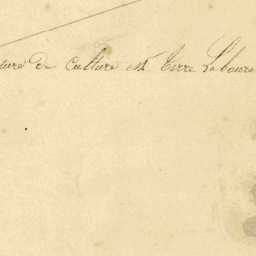 ture de Culture est Terre Laboure